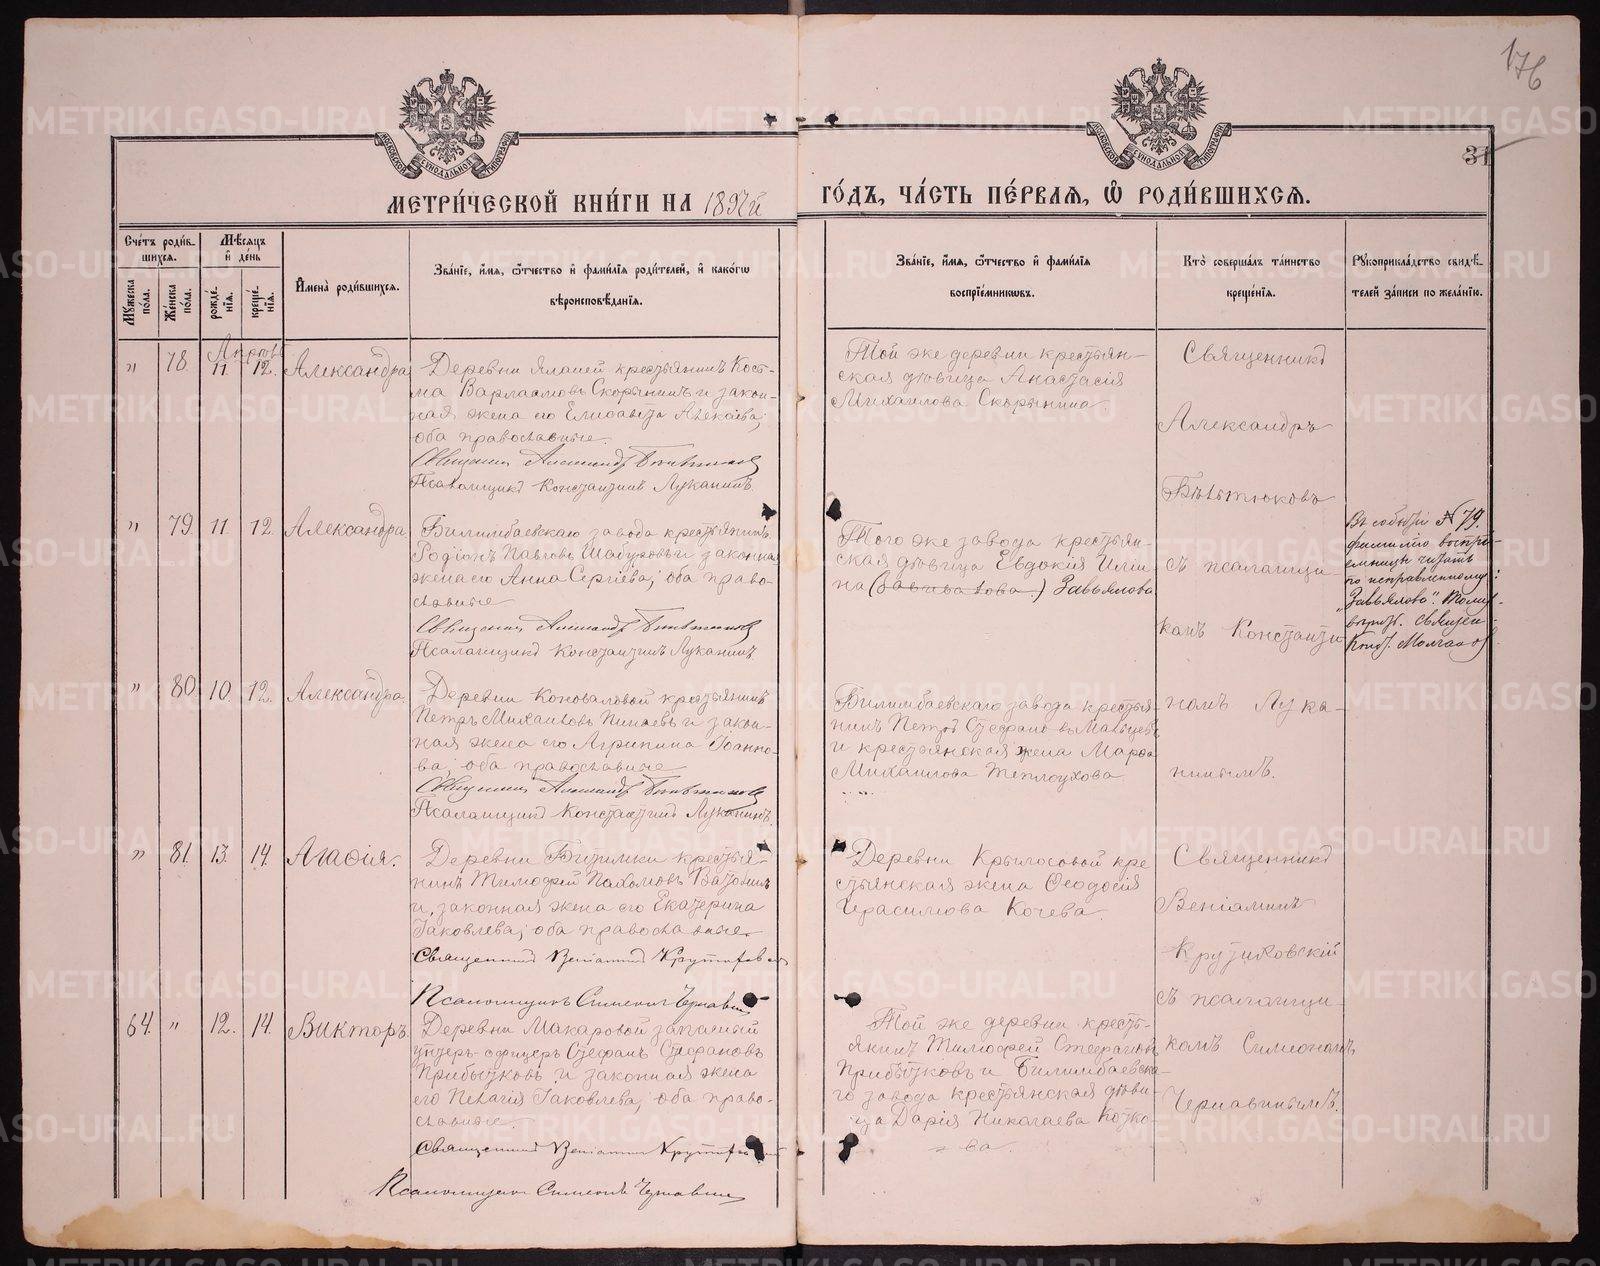 176
31
МЕТРИ́ЧЕСКОЙ КНИ́ГИ НА 1897й ГО́ДЪ, ЧА́СТЬ ПЕ́РВАѦ, Ѿ РОДИ́ВШИХСѦ.
Сче́тъ роди́в-
шихсѧ.
Мѣ́сѧцъ
и҆ де́нь
Мꙋ́жеска по́ла.
Же́нска по́ла.
рожде́-нїѧ.
креще́-нїѧ.
И҆мена̀ роди́вшихсѧ.
Зва́нїе, и҆́мѧ, ѻ҆́тчество и҆ фами́лїѧ роди́телей, и҆ како́гѡ
вѣроисповѣ́данїѧ.
Зва́нїе, и҆́мѧ, ѻ҆́тчество и҆ фами́лїѧ
воспрїе́мникѡвъ.
Кто̀ соверша́лъ та́инство
креще́нїѧ.
Рꙋкоприкла́дство свидѣ́-
телей за́писи по жела́нїю.
Апрѣль
" 78 11 12. Александра
Деревни Яланей крестьянинъ Кось-
ма Варлаамовъ Скорынинъ и закон-
ная жена его Елисавета
оба православные.
Священникъ Александръ
Псаломщикъ Константинъ Луканинъ.
Той же деревни крестьян-
ская дѣвица Анастасія
Михаилова Скорынина.
Священникъ
Александръ
съ псаломщи-
комъ Константи-
номъ Лука-
нинымъ.
" 79 11. 12. Александра
Билимбаевскаго завода крестьянинъ
Родіонъ Павловъ Шабуровъ и законная
жена его Анна Сергіева; оба право-
славные
Священникъ Александръ
Псаломщикъ Константинъ Луканинъ
Того же завода крестьян-
ская дѣвица Евдокія Иліи-
на Завьялова
Въ событіи № 79.
фамилію воспрі-
емницы читать
по исправленному:
"Завьялова".
Священ-
" 80 10. 12. Александра.
Деревни Коноваловой крестьянинъ
Петръ Михаиловъ Пинаевъ и закон-
ная жена его Агрипина Іоанно-
ва; оба православные
Священникъ Александръ
Псаломщикъ Константинъ Луканинъ.
Билимбаевскаго завода крестья-
нинъ Петръ Стефановъ Мальцевъ
и крестьянская жена Марѳа
Михаилова Теплоухова.
" 81. 13. 14. Агаѳія.
Деревни Битимки крестья-
нинъ Тимоѳей Пахомовъ Ватолинъ
и законная жена его Екатерина
Іаковлева; оба православные.
Священникъ Веніаминъ
Псаломщикъ Симеонъ
Деревни Крылосовой кре-
стьянская жена Ѳеодосія
Герасимова Кочева.
Священникъ
Веніаминъ
съ псаломщи-
комъ Симеономъ
Чернавинымъ.
64. " 12. 14. Викторъ.
Деревни Макаровой запасный
унтеръ-офицеръ Стефанъ Стефановъ
Прибытковъ и законная жена
его Пелагія Іаковлева; оба право-
славные.
Священникъ Веніаминъ
Псаломщикъ Симеонъ
Той же деревни кресть-
янинъ Тимоѳей Стефановъ
Прибытковъ и Билимбаевска-
го завода крестьянская дѣви-
ца Дарія Николаева